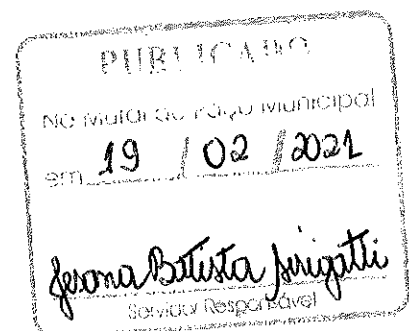 PUBLICADO
No Mural do Paço Municipal
em 19 / 02 / 2021
Batista
Servidor Responsável